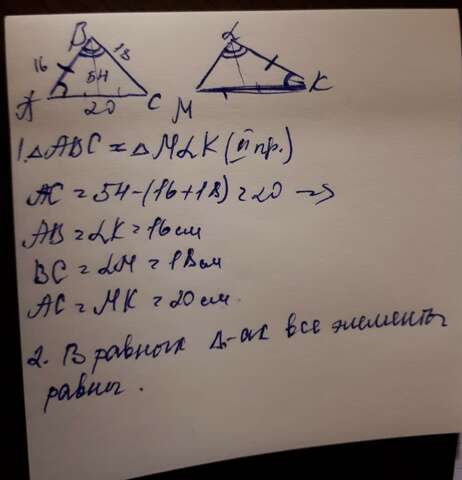 B
16
18
54
A
20
C
L
M
K
1. △ABC = △MLK (II пр.)
AC = 54-(16+18) = 20 ⇒
AB = LK = 16 см
BC = LM = 18 см
AC = MK = 20 см.
2. В равных △-ах все элементы
равны.